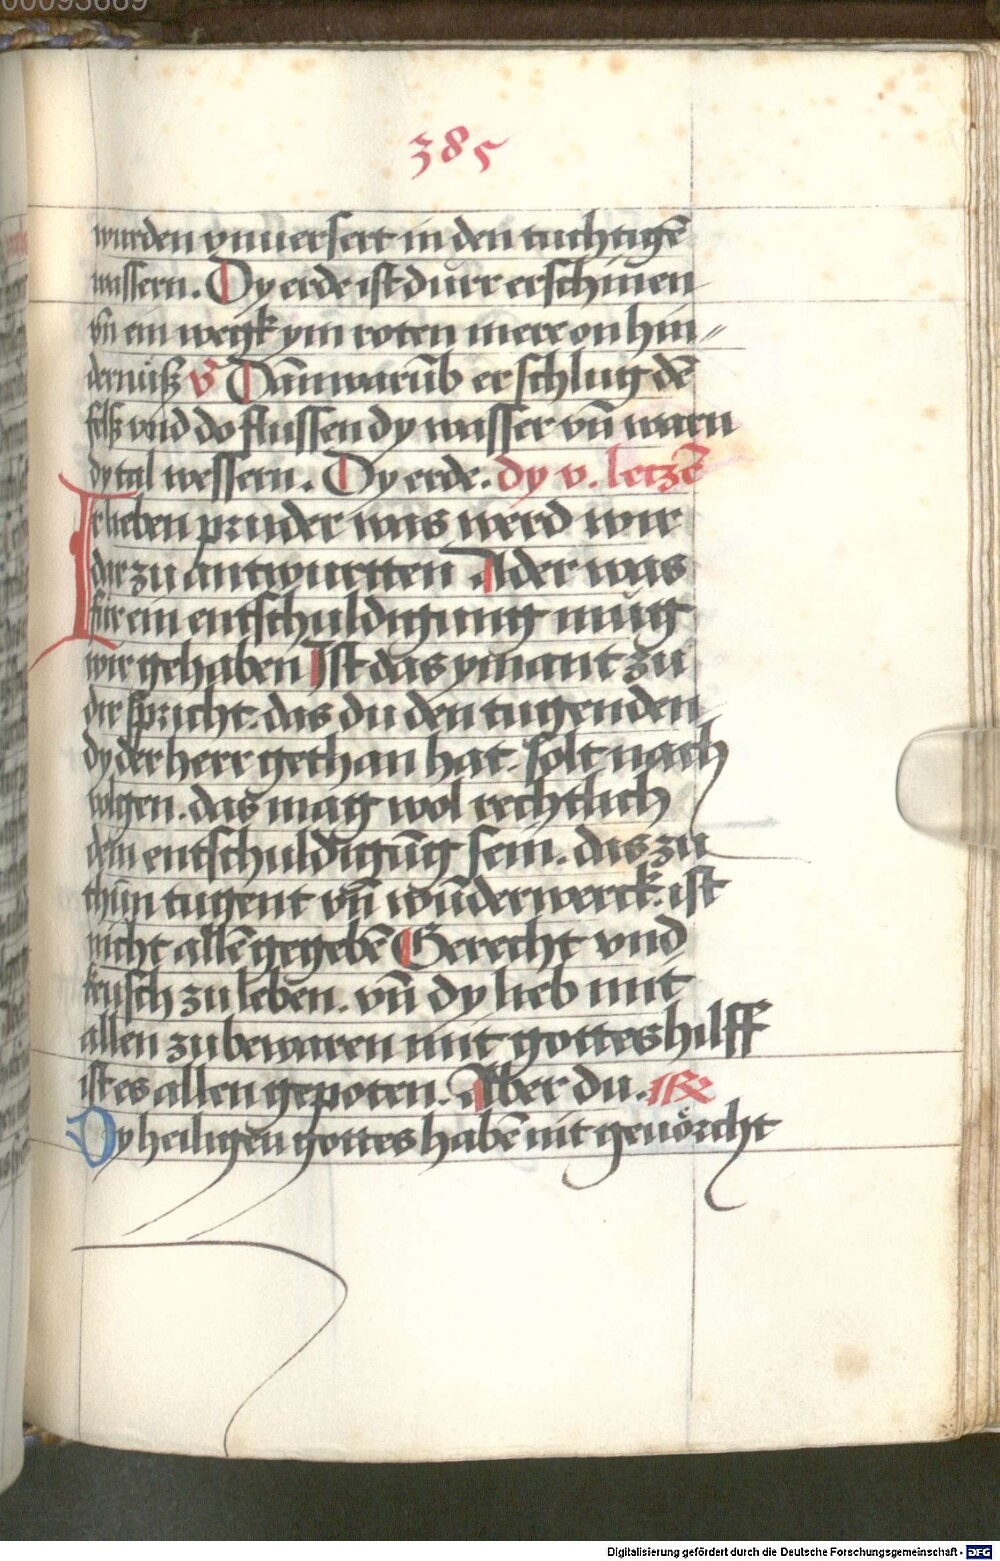 00093669
385
wurden vnuersert in den tuchtigē
wassern. Dy erde ist dürr erschinen
vn̄ ein wegk ym roten mere on hin⸗
dernüß v̄ Dann warūb er schlug dē
felß vnd do flussen dy wasser vn̄ warn
dy tal wessern. Dy erde. dy v. letzē
Ir lieben pruder was werd wir
dar zu antwurtten Ader was
für ein entschuldigung müg
wir gehaben Ist das ymant zu
dir spricht. das du den tugenden
dy der herr gethan hat. solt nach
volgen. das mag wol rechtlich
dein entschuldigūg sein. das zu
thün tugent vn̄ wūderwerck. ist
nicht allē gegebē Gerecht vnd
keusch zu leben. vn̄ dy lieb mit
allen zubewaren mit gottes hilff
ist es allen gepoten. Aber du.
Dy heiligen gottes habē nit geuörcht
Digitalisierung gefördert durch die Deutsche Forschungsgemeinschaft - DFG